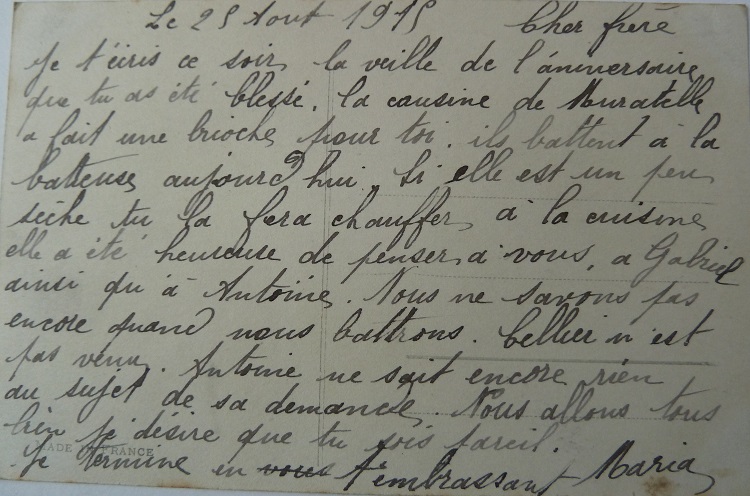 Le 25 Aout 1915 Cher frère
Je t'écris ce soir, la veille de l'anniversaire
que tu as été blessé. la cousine de Muratelle
a fait une brioche pour toi. ils battent à la
batteuse aujourd'hui. Si elle est un peu
sèche tu la fera chauffer, à la cuisine
elle a été heureuse de penser à vous, a Gabriel
ainsi qu'à Antoine. Nous ne savons pas
encore quand nous battrons. Cellier n'est
pas venu. Antoine ne sait encore rien
au sujet de sa demande. Nous allons tous
bien je désire que tu sois pareil.
MADE IN FRANCE
Je termine en vous t'embrassant Maria